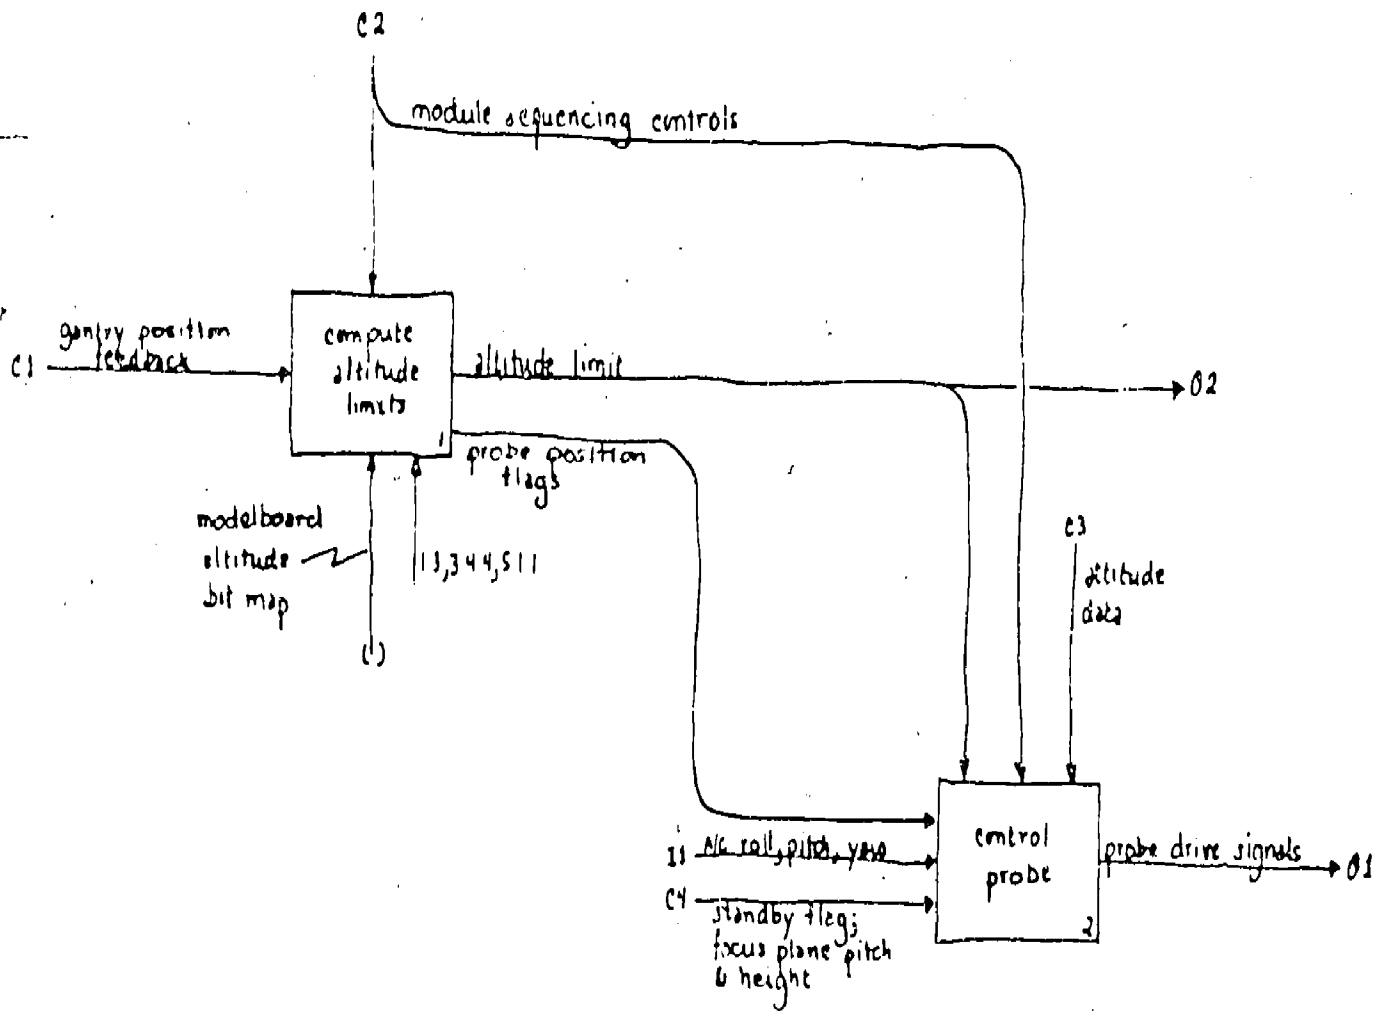 C2
module sequencing controls
gantry position
feedback
C1
compute
altitude
limits
1
altitude limit
O2
probe position
flags
modelboard
altitude
bit map
C3
altitude
data
control
probe
2
I1 A/C roll, pitch, yaw
C4
standby flag;
focus plane pitch
& height
probe drive signals
O1